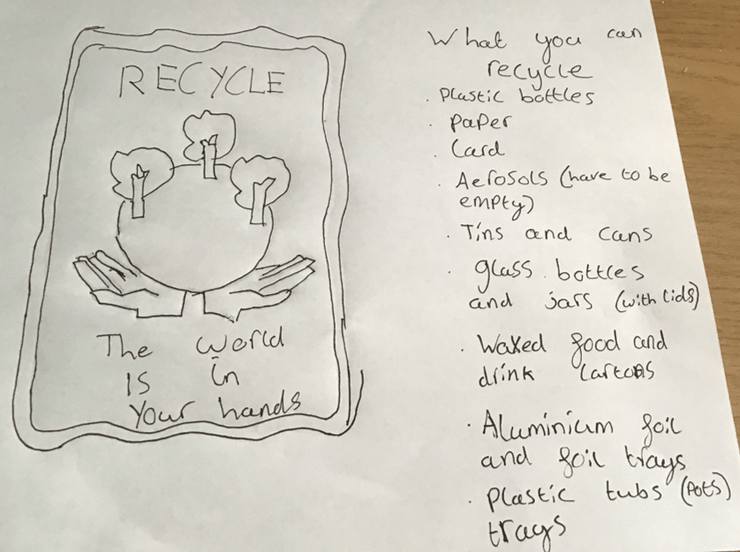 RECYCLE
The world
Is in
Your hands
What you can
recycle
. Plastic bottles
. Paper
. Card
. Aerosols (have to be
empty)
. Tins and cans
. glass bottles
and jars (with lids)
. Waxed food and
drink cartons
. Aluminium foil
and foil trays
. Plastic tubs (Pots)
trays